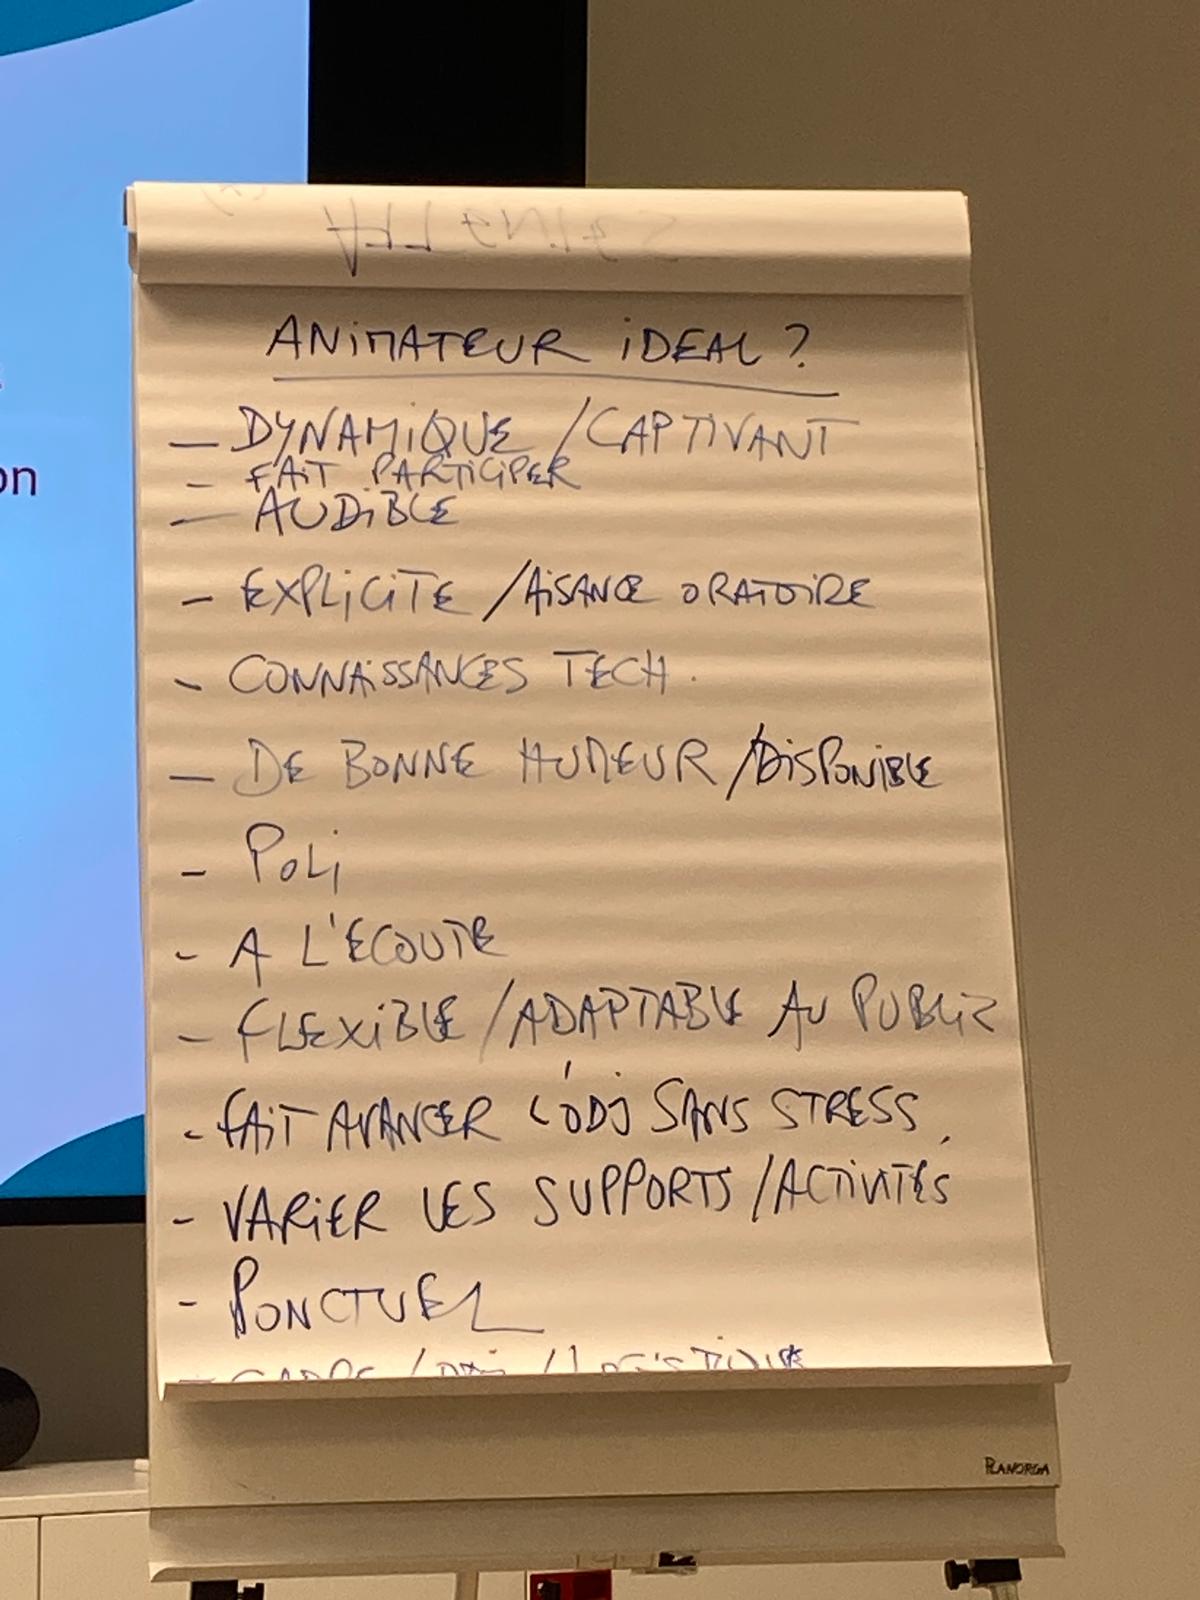 ANIMATEUR IDEAL ?
on
- DYNAMIQUE / CAPTIVANT
- FAIT PARTICIPER
- AUDIBLE
- EXPLICITE / AISANCE ORATOIRE
- CONNAISSANCES TECH.
- DE BONNE HUMEUR / DISPONIBLE
- POLI
- A L'ECOUTE
- FLEXIBLE / ADAPTABLE AU PUBLIC
- FAIT AVANCER L'ODJ SANS STRESS
- VARIER LES SUPPORTS / ACTIVITÉS
- PONCTUEL
- CADRE / / LOGISTIQUE
PLANORGA